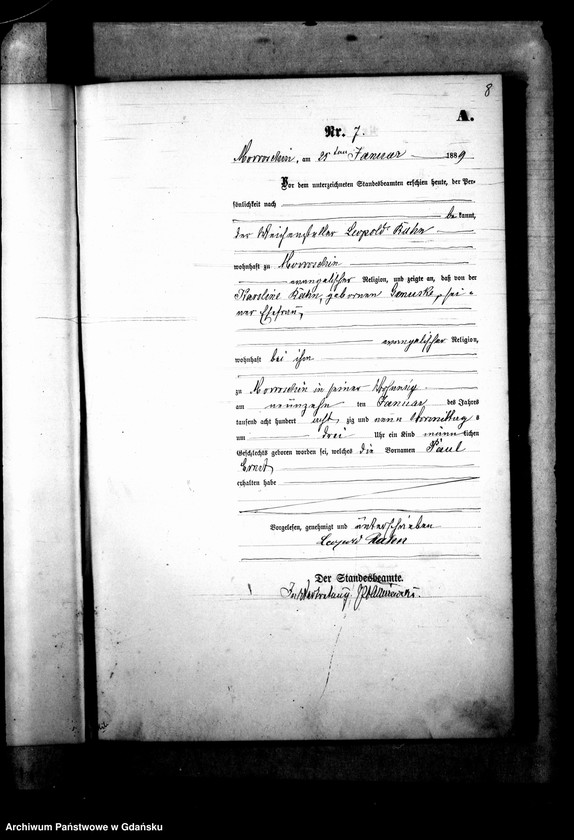 8
A.
Nr. 7.
Morroschin, am 25ten Januar 1889
Vor dem unterzeichneten Standesbeamten erschien heute, der Per-
sönlichkeit nach
bekannt,
der Weichensteller Leopold Kuhn
wohnhaft zu Morroschin
evangelischer Religion, und zeigte an, daß von der
Karoline Kuhn, gebornen, sei-
ner Ehefrau,
evangelischer Religion,
wohnhaft bei ihm
zu Morroschin in seiner Wohnung
am neunzehn ten Januar des Jahres
tausend acht hundert acht zig und neun Vormittags
um drei Uhr ein Kind männlichen
Geschlechts geboren worden sei, welches die Vornamen Paul
Ernst
erhalten habe
Vorgelesen, genehmigt und unterschrieben
Leopold Kuhn
Der Standesbeamte.
In Vertretung
Archiwum Państwowe w Gdańsku